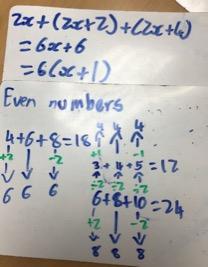 2x+(2x+2)+(2x+4)
=6x+6
=6(x+1)
Even numbers
4 4 4
+1 -1
4+6+8=18
+2 -2
3+4+5=12
÷2 ÷2 ÷2
6 6 6
6+8+10=24
+2 -2
8 8 8